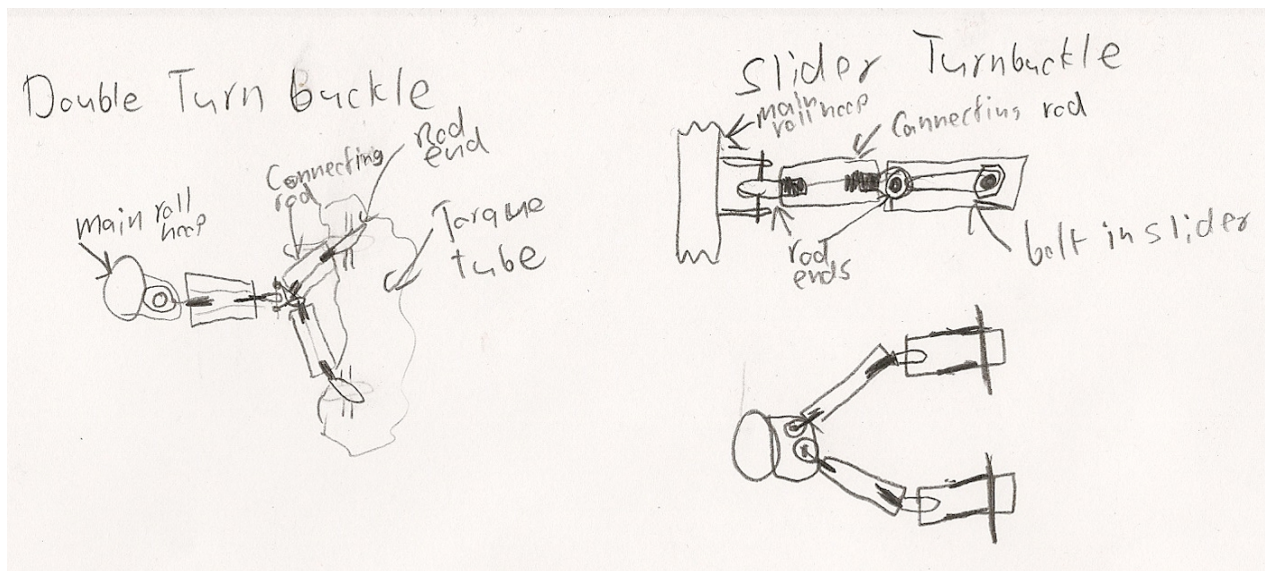 Double Turn Buckle
Rod
end
Connecting
rod
main roll
hoop
Torque
tube
Slider Turnbuckle
main
roll hoop
Connecting rod
rod
ends
bolt in slider